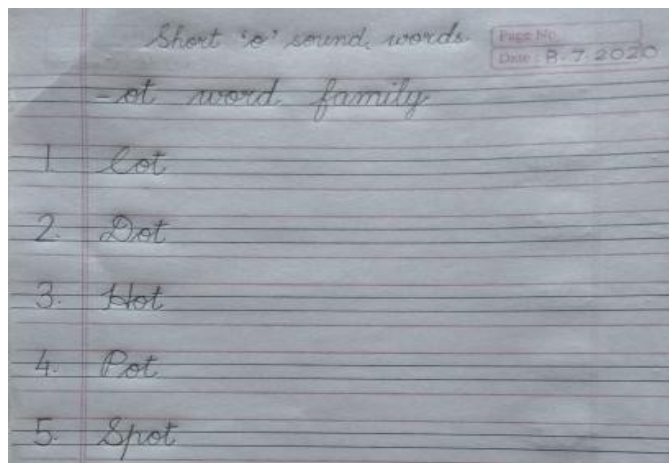 Short 'o' sound words.
Page No.
Date: 8.7.2020
-ot word family
1. Cot
2. Dot
3. Hot
4. Pot
5. Spot